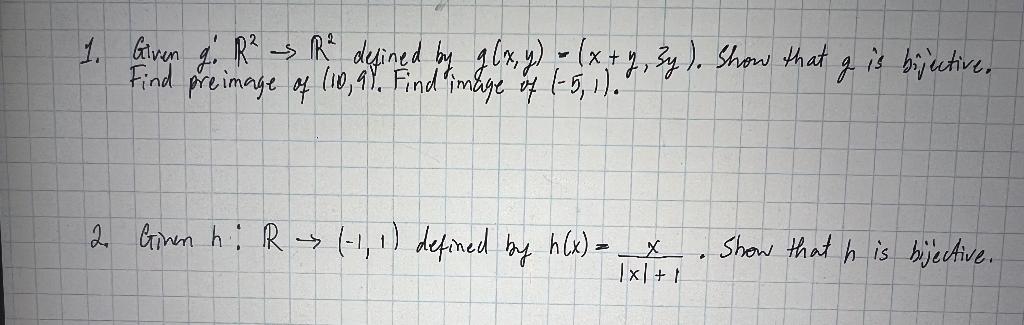 1. Given g: R² → R² defined by g(x, y) = (x + y, 3y). Show that g is bijective.
Find preimage of (10, 9). Find image of (-5, 1).
2. Given h: R → (-1, 1) defined by h(x) = x / |x| + 1 . Show that h is bijective.